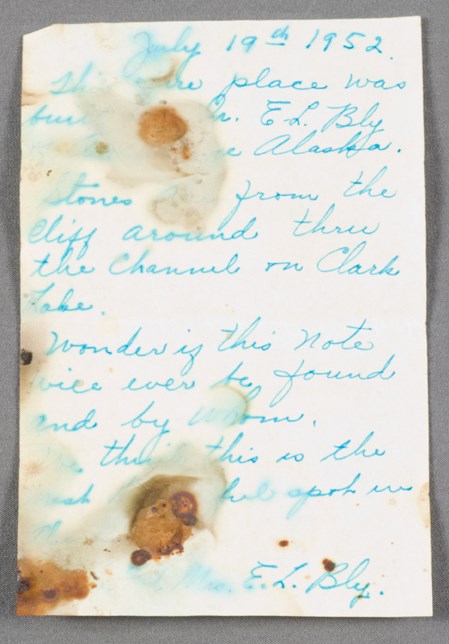 July 19th 1952.
place was
E.L. Bly
Alaska.
Stones from the
Cliff around thru
the Channel on Clark
Lake.
Wonder if this Note
ever be found
and by whom.
this is the
spot in
E.L. Bly.